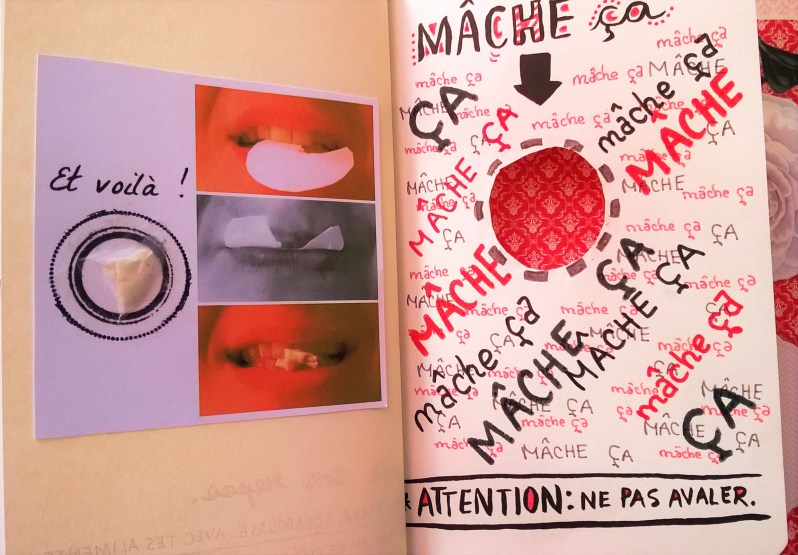 Et voilà !
MÂCHE ça
mâche ça
mâche ça
mâche ça
MÂCHE
mâche ça
ÇA
MÂCHE
mâche ça
mâche ça
MÂCHE ÇA
mâche ça
MÂCHE
ÇA
MÂCHE
MÂCHE
mâche ça
ÇA
mâche ça
MÂCHE
ÇA
MÂCHE ÇA
mâche ça
mâche ça
mâche ça
mâche ça
mâche ça
MÂCHE ÇA
mâche ça
MÂCHE
ÇA
mâche ça
MÂCHE
ÇA
mâche ça
MÂCHE ÇA
mâche ça
* ATTENTION: NE PAS AVALER.
AVEC TES ALIMENTS